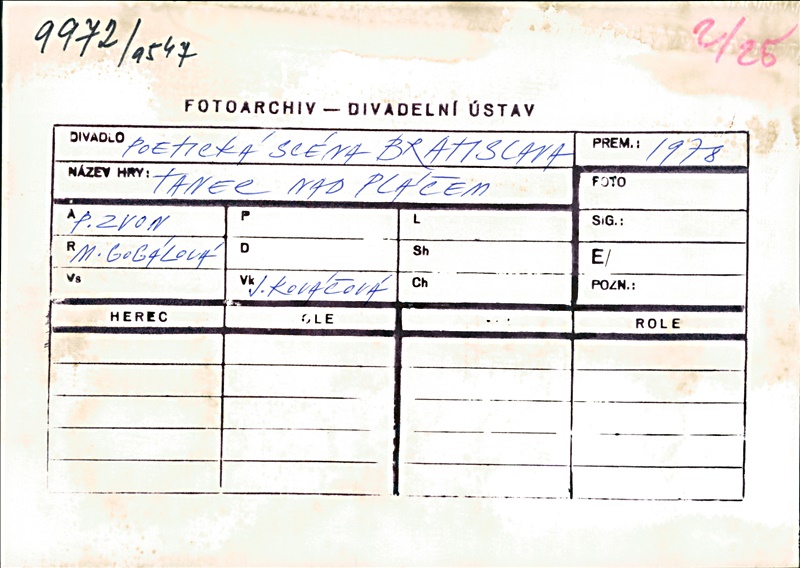 9972/9547
2/25
FOTOARCHIV — DIVADELNÍ ÚSTAV
DIVADLO POETICKÁ SCÉNA BRATISLAVA
PREM.: 1978
NÁZEV HRY: TANEC NAD PLÁČEM
FOTO
A P. ZVON
P
L
SIG.:
R M. GOGÁLOVÁ
D
Sh
E/
Vs
Vk J. KOVÁČOVÁ
Ch
POZN.:
HEREC
OLE
ROLE